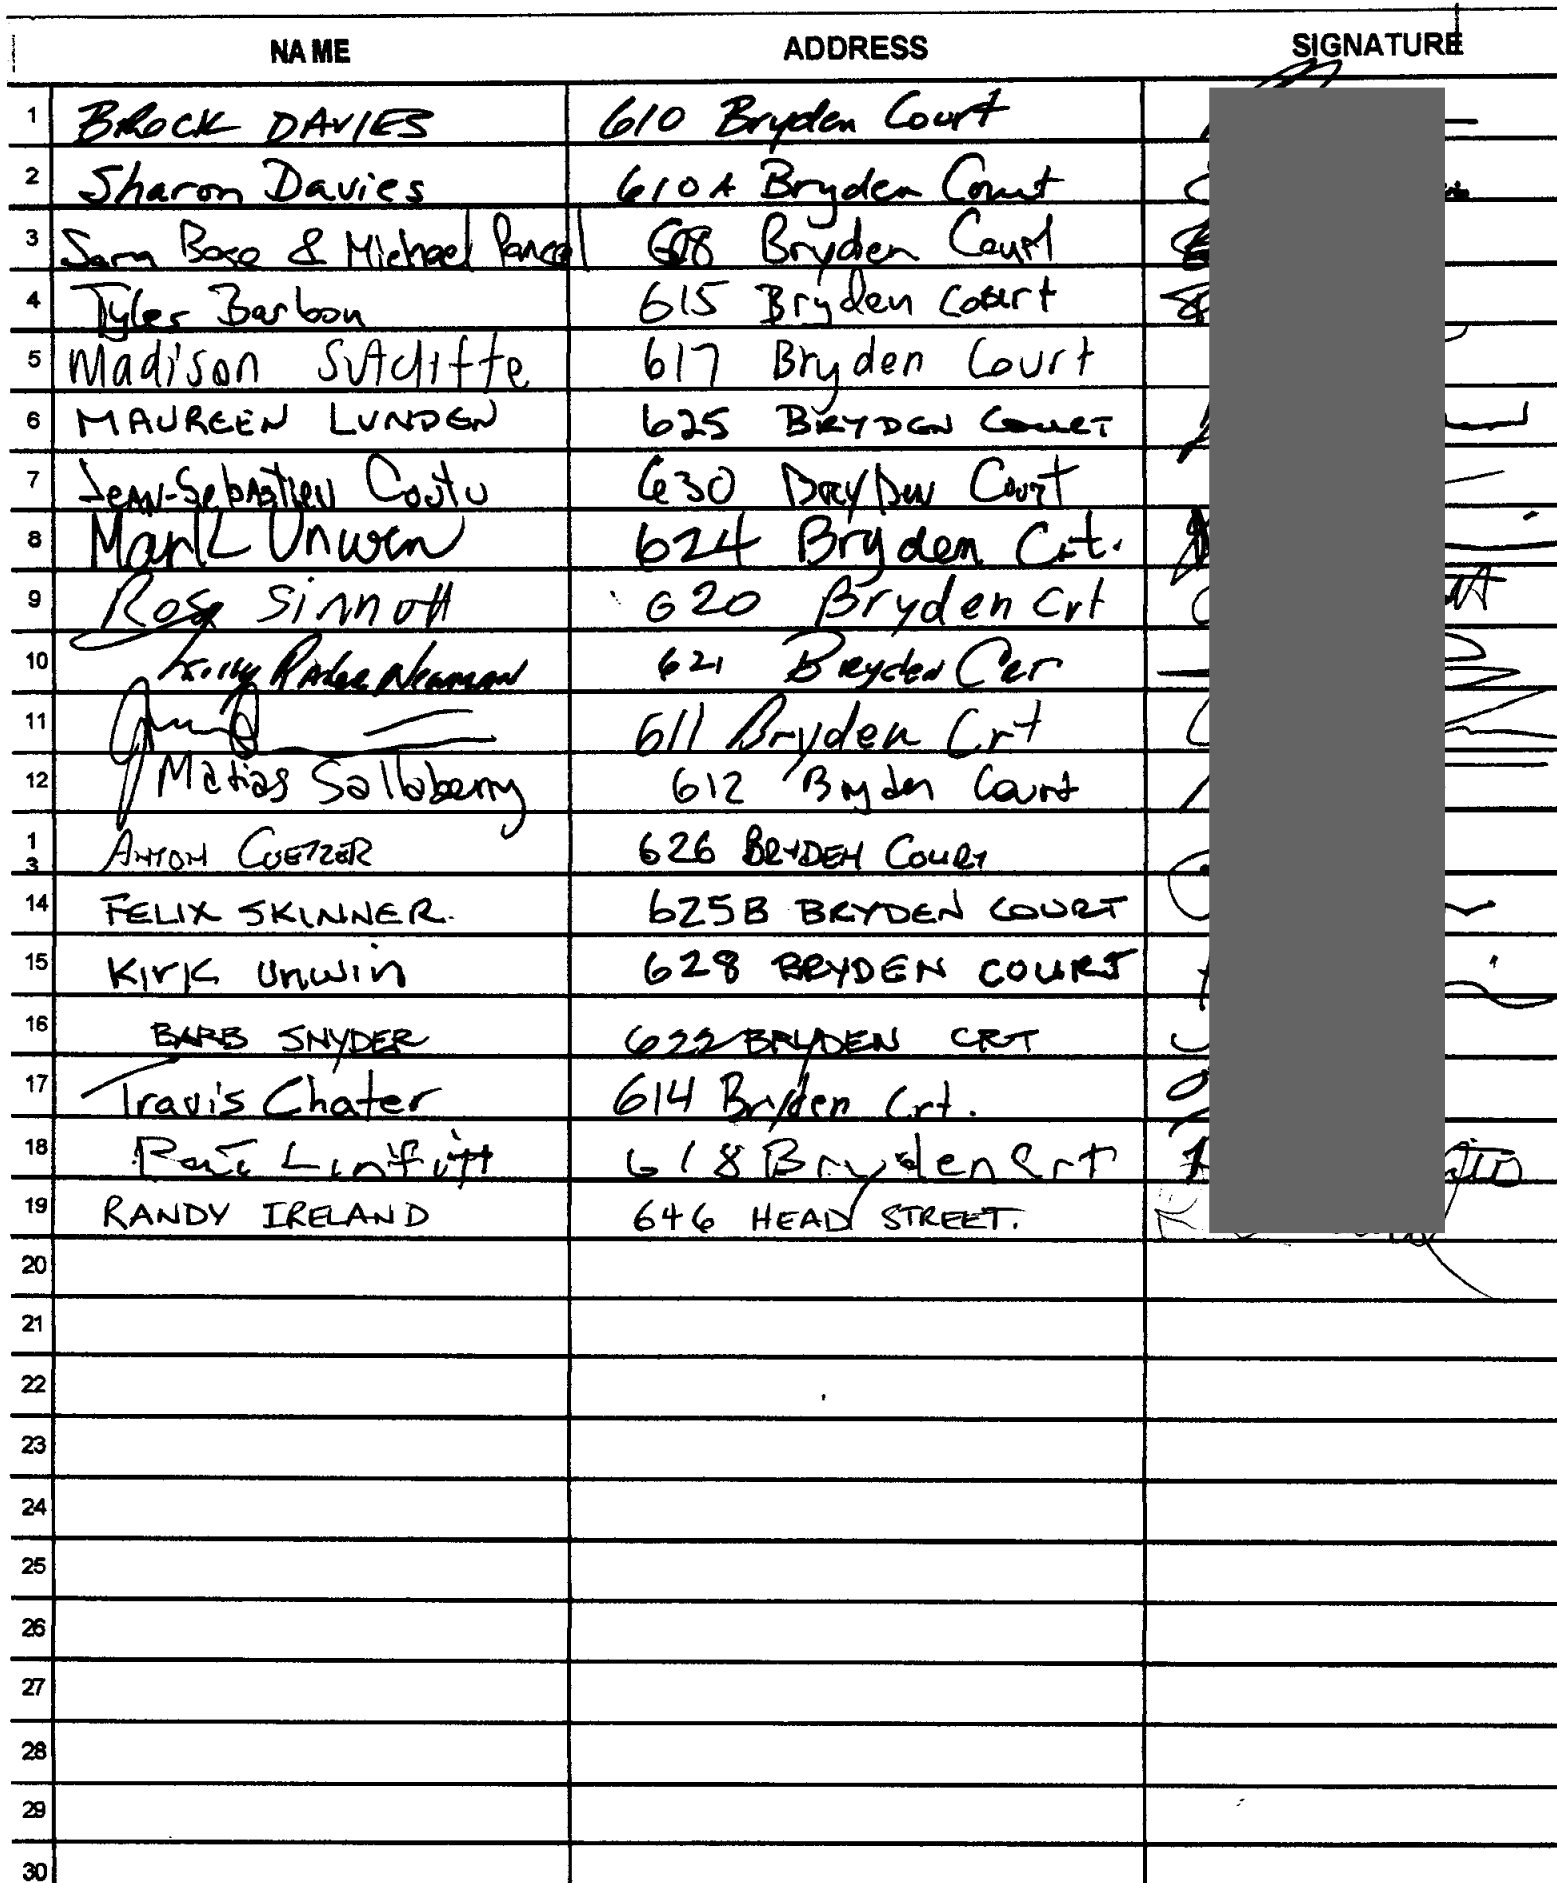 NAME ADDRESS SIGNATURE
1 BROCK DAVIES 610 Bryden Court
2 Sharon Davies 610A Bryden Court
3 & Michael 608 Bryden Court
4 Tyler Barbon 615 Bryden Court
5 Madison Sutcliffe 617 Bryden Court
6 MAUREEN LUNDEN 625 BRYDEN COURT
7 Jean-Sebastien Coutu 630 Bryden Court
8 Mark Unwin 624 Bryden Crt.
9 Rose Sinnott 620 Bryden Crt
10 Newman 621 Bryden Crt
11 611 Bryden Crt
12 Matias Sallaberry 612 Bryden Court
13 ANTON COETZER 626 BRYDEN COURT
14 FELIX SKINNER. 625B BRYDEN COURT
15 Kirk Unwin 628 BRYDEN COURT
16 BARB SNYDER 622 BRYDEN CRT
17 Travis Chater 614 Bryden Crt.
18 Linfitt 618 Bryden Crt
19 RANDY IRELAND 646 HEAD STREET.
20
21
22
23
24
25
26
27
28
29
30